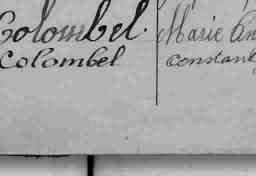 Colombel. Marie An
Colombel Constan